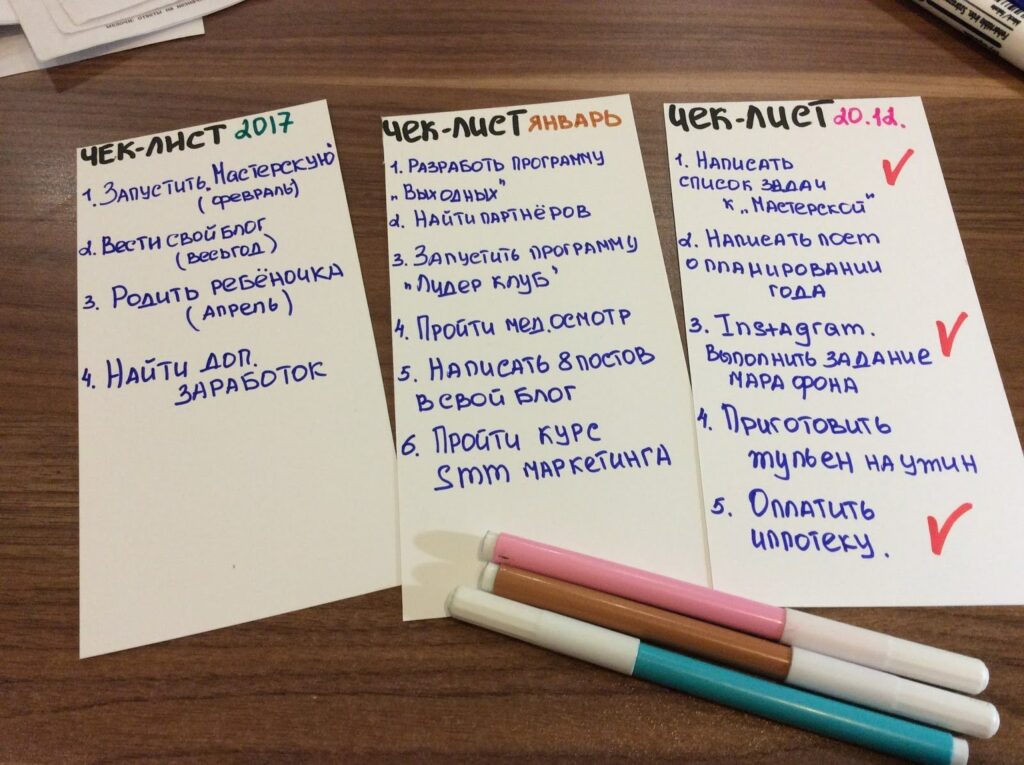 ЧЕК-ЛИСТ 2017
1. Запустить „Мастерскую"
(февраль)
2. Вести свой блог
(весь год)
3. Родить ребёночка
(апрель)
4. Найти доп.
заработок
ЧЕК-ЛИСТ ЯНВАРЬ
1. Разработь программу
„Выходных"
2. Найти партнёров
3. Запустить программу
„Лидер клуб"
4. Пройти мед.осмотр
5. Написать 8 постов
в свой блог
6. Пройти курс
Smm маркетинга
ЧЕК-ЛИСТ 20.12.
1. Написать
список задач
к „Мастерской"
2. Написать пост
о планировании
года
3. Instagram.
Выполнить задание
марафона
4. Приготовить
жульен на ужин
5. Оплатить
ипотеку.